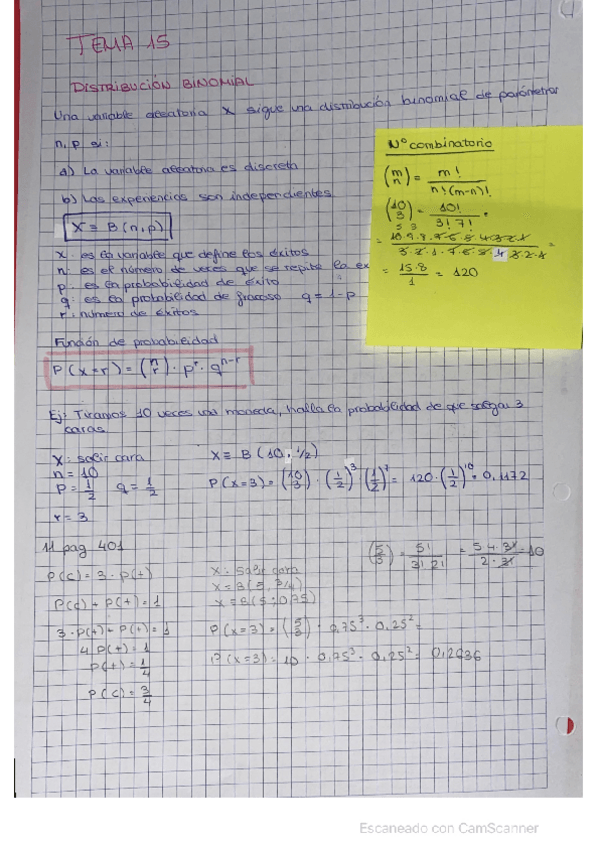 TEMA 15
DISTRIBUCIÓN BINOMIAL
Una variable aleatoria X sigue una distribución binomial de parámetros
n, p si:
a) La variable aleatoria es discreta
b) Las experiencias son independientes
X ≡ B(n,p)
X: es la variable que define los éxitos
n: es el número de veces que se repite la ex
p: es la probabilidad de éxito
q: es la probabilidad de fracaso q = 1-p
r: número de éxitos
Nº combinatorio
(m n) = m! / n!(m-n)!
(10 3) = 10! / 3! 7! =
5 3
= 10·9·8·7·6·5·4·3·2·1 / 3·2·1·7·6·5·4·3·2·1 =
= 15·8 / 1 = 120
Función de probabilidad
P(x=r) = (n r) · p^r · q^n-r
Ej: Tiramos 10 veces una moneda, halla la probabilidad de que salgan 3
caras
X: salir cara X ≡ B(10, 1/2)
n = 10
p = 1/2 q = 1/2 P(x=3) = (10 3) · (1/2)^3 · (1/2)^7 = 120 · (1/2)^10 = 0,1172
r = 3
11 pag 401
(5 3) = 5! / 3! 2! = 5·4·3! / 2·3! = 10
P(c) = 3 · P(+)
P(c) + P(+) = 1
3·P(+) + P(+) = 1
4 P(+) = 1
P(+) = 1/4
P(c) = 3/4
X: salir cara
X = B(5, 3/4)
X = B(5; 0,75)
P(x=3) = (5 3) · 0,75^3 · 0,25^2 =
P(x=3) = 10 · 0,75^3 · 0,25^2 = 0,2636
Escaneado con CamScanner